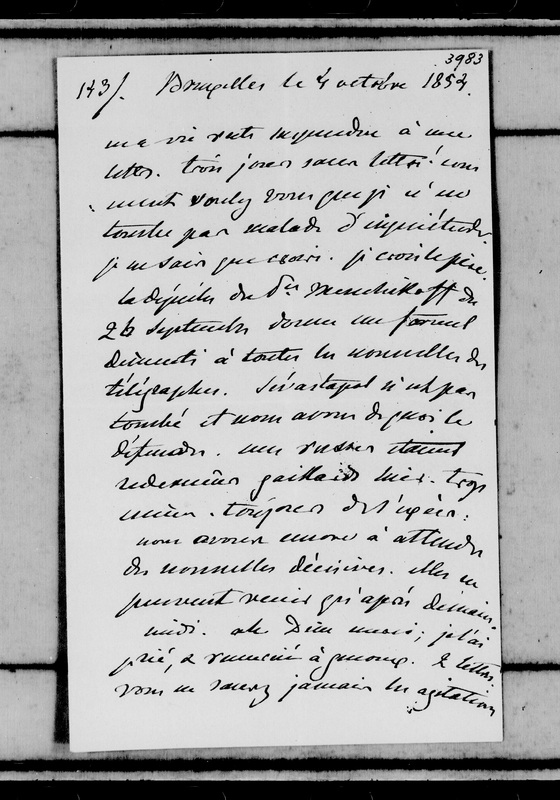 3983
143/. Bruxelles le 4 octobre 1854.
ma vie reste suspendue à une
lettre. trois jours sans lettre! com
ment voulez vous que je n'
tombe pas malade d'inquiétude.
je ne sais que croire. je crois le pire.
la dépêche du Pce Menchikoff du
26 septembre donne un formel
démenti à toutes les nouvelles des
télégraphes. Sévastopol n'est pas
tombé et nous avons de quoi le
défendre. mes russes étaient
redevenus gaillards hier. trop
même. toujours de l'
nous avons encore à attendre
des nouvelles décisives. elles ne
peuvent venir qu'après demain.
midi. ah Dieu merci; je l'ai
prié, & remercié à genoux. 2 lettres.
vous ne saurez jamais les agitations